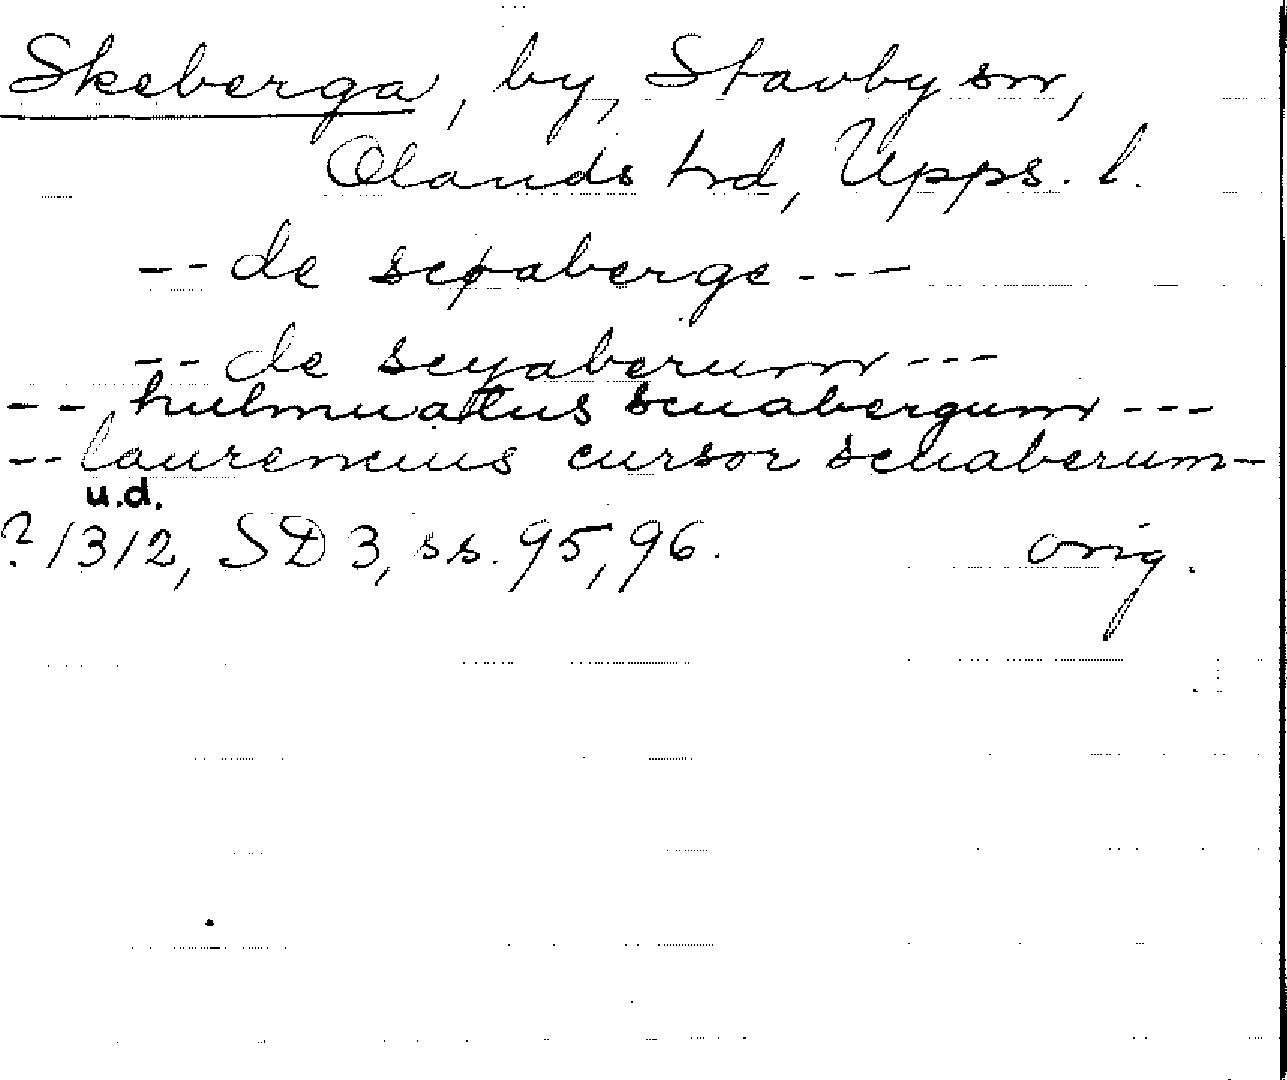 Skeberga, by, Stavby sn,
Olands hd, Upps. l.
-- de scþaberge ---
-- de scyaberum ---
-- hulmuattus scuabergum ---
-- laurencius cursor scuaberum --
u.d.
? 1312, SD 3, ss. 95, 96. orig.